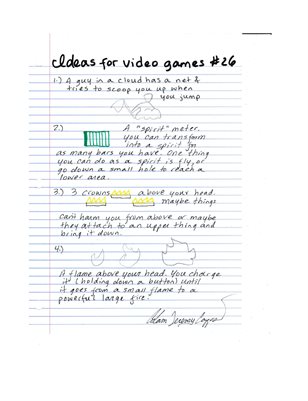 Ideas for video games #26
1.) A guy in a cloud has a net &
tries to scoop you up when
you jump
2.) A "spirit" meter.
You can transform
into a spirit for
as many bars you have. One thing
you can do as a spirit is fly, or
go down a small hole to reach a
lower area.
3.) 3 crowns above your head.
maybe things
can't harm you from above or maybe
they attach to an upper thing and
bring it down.
4.)
A flame above your head. You charge
it (holding down a button) until
it goes from a small flame to a
powerful large fire.
Adam Jeremy